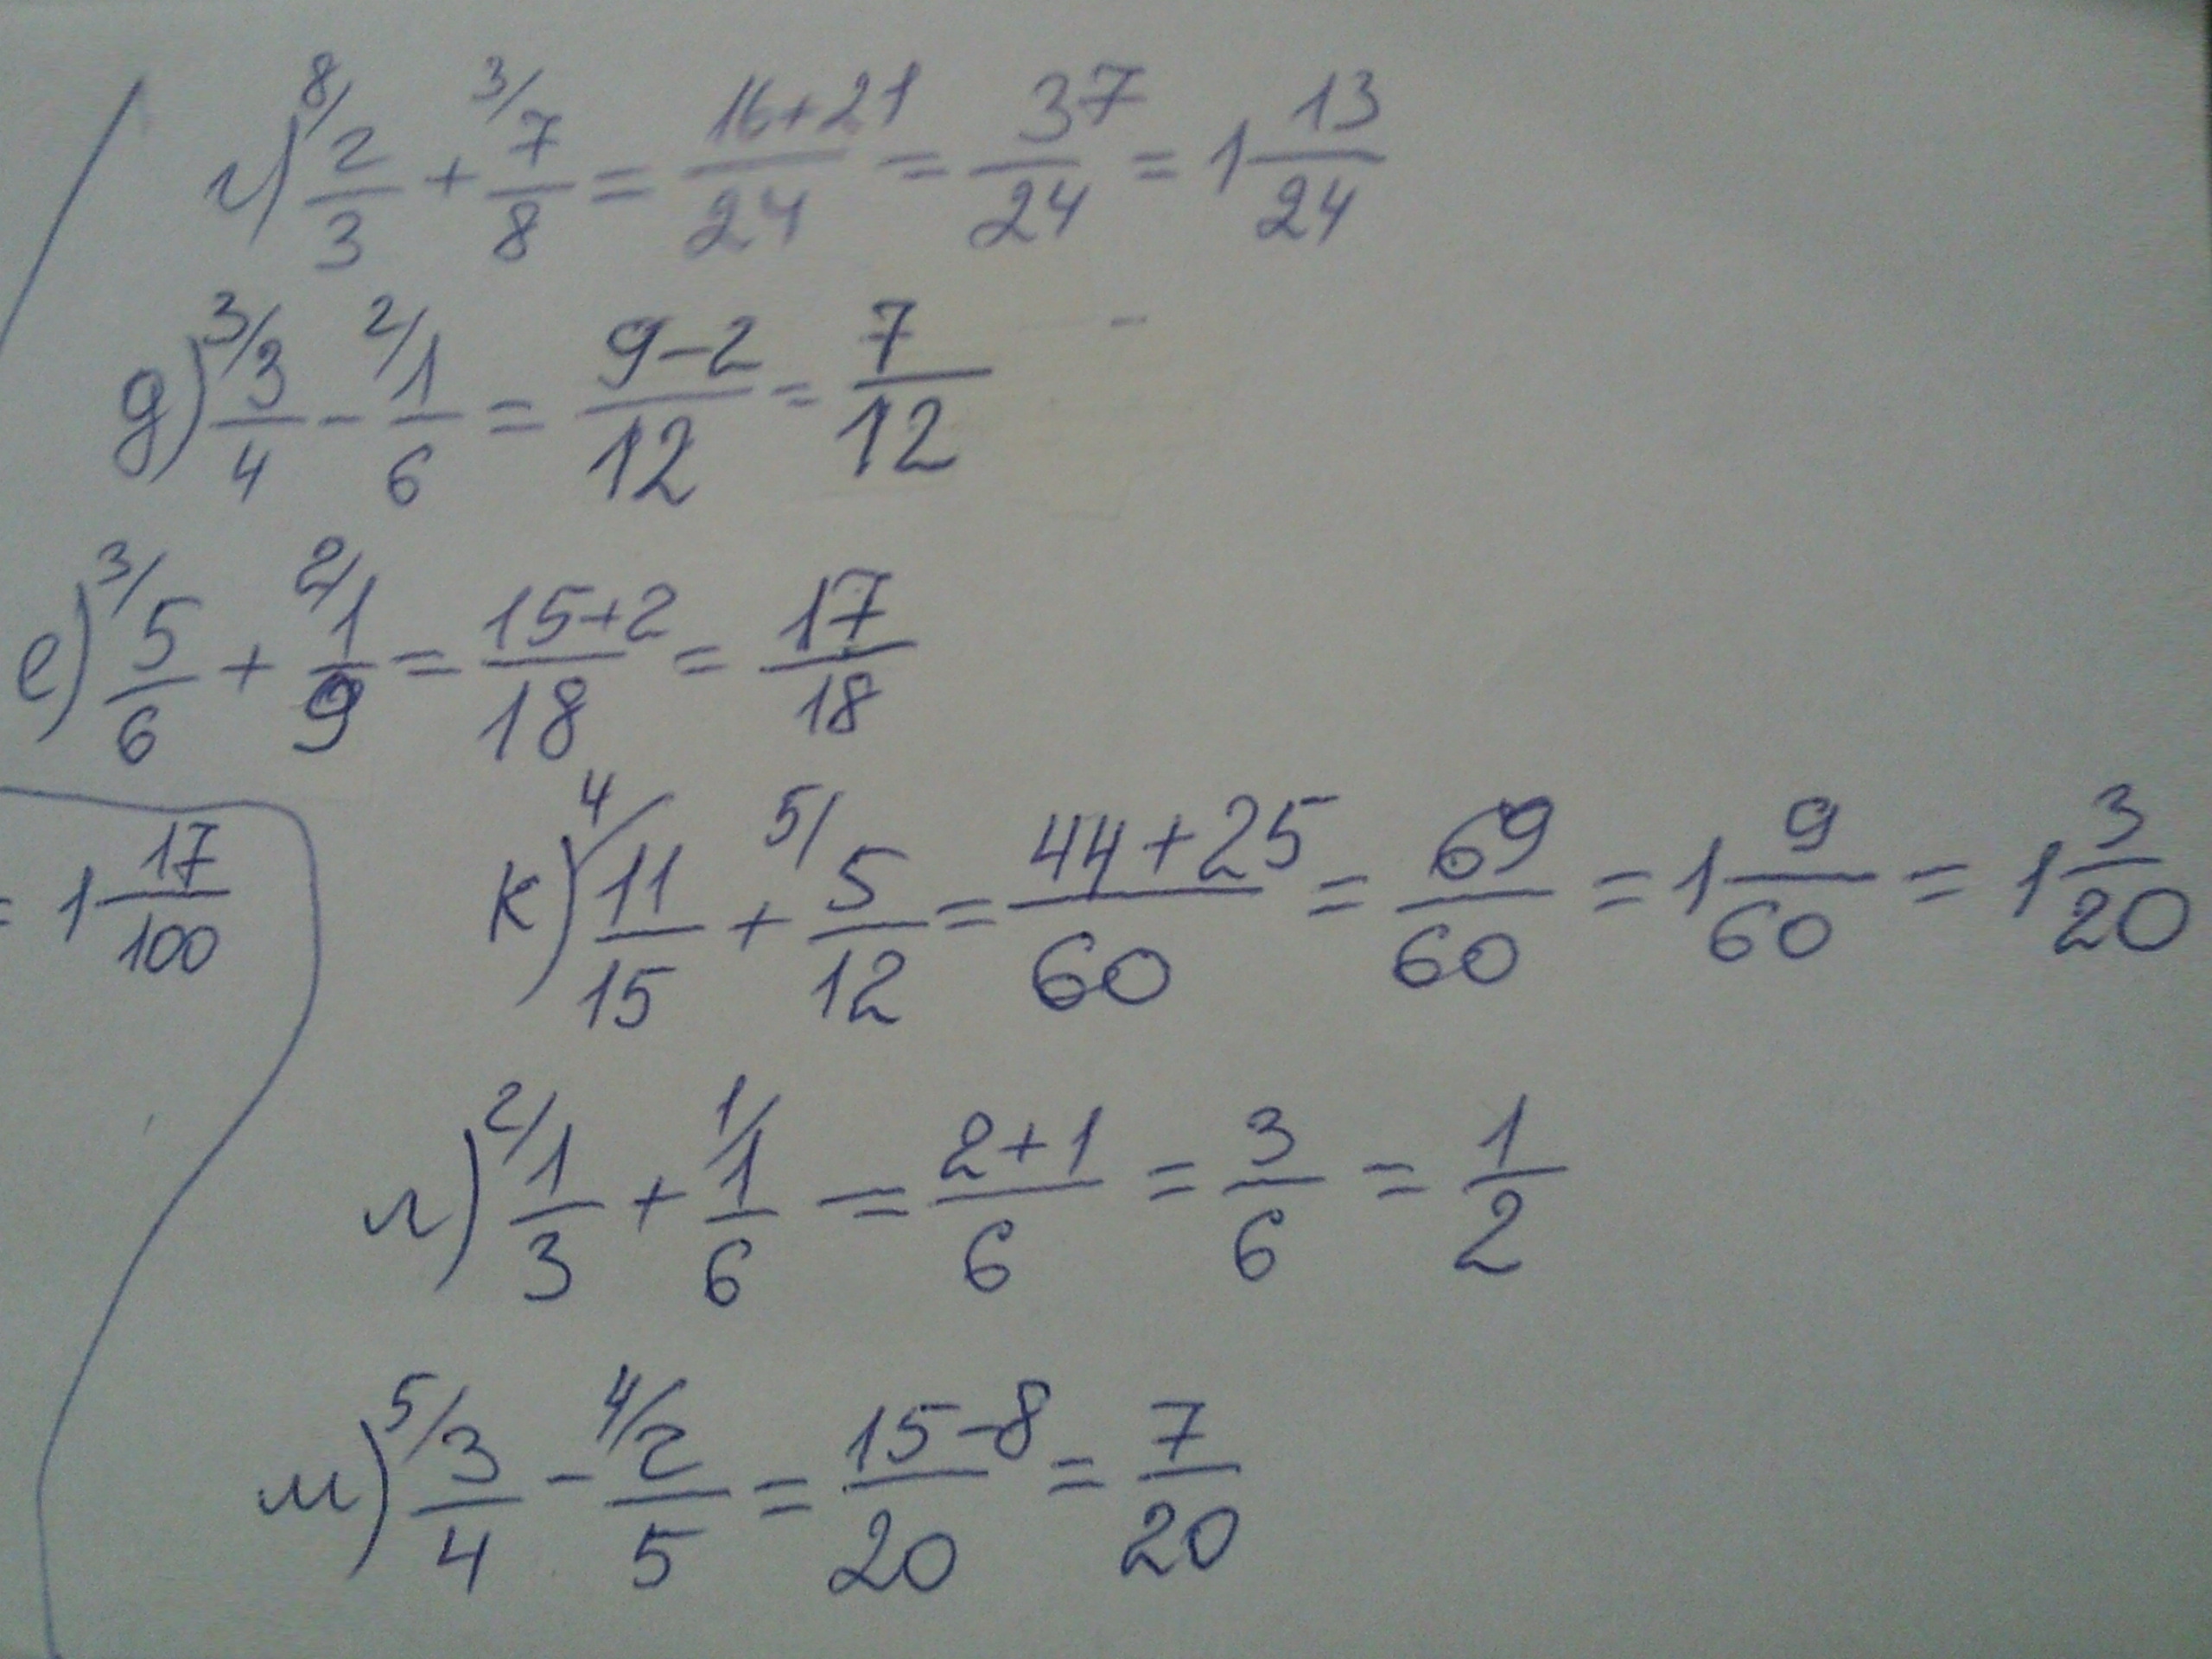 г) ⁸/ 2/3 + ³/ 7/8 = (16+21)/24 = 37/24 = 1 13/24
д) ³/ 3/4 - ²/ 1/6 = (9-2)/12 = 7/12
е) ³/ 5/6 + ²/ 1/9 = (15+2)/18 = 17/18
= 1 17/100
к) ⁴/ 11/15 + ⁵/ 5/12 = (44+25)/60 = 69/60 = 1 9/60 = 1 3/20
л) ²/ 1/3 + ¹/ 1/6 = (2+1)/6 = 3/6 = 1/2
м) ⁵/ 3/4 - ⁴/ 2/5 = (15-8)/20 = 7/20